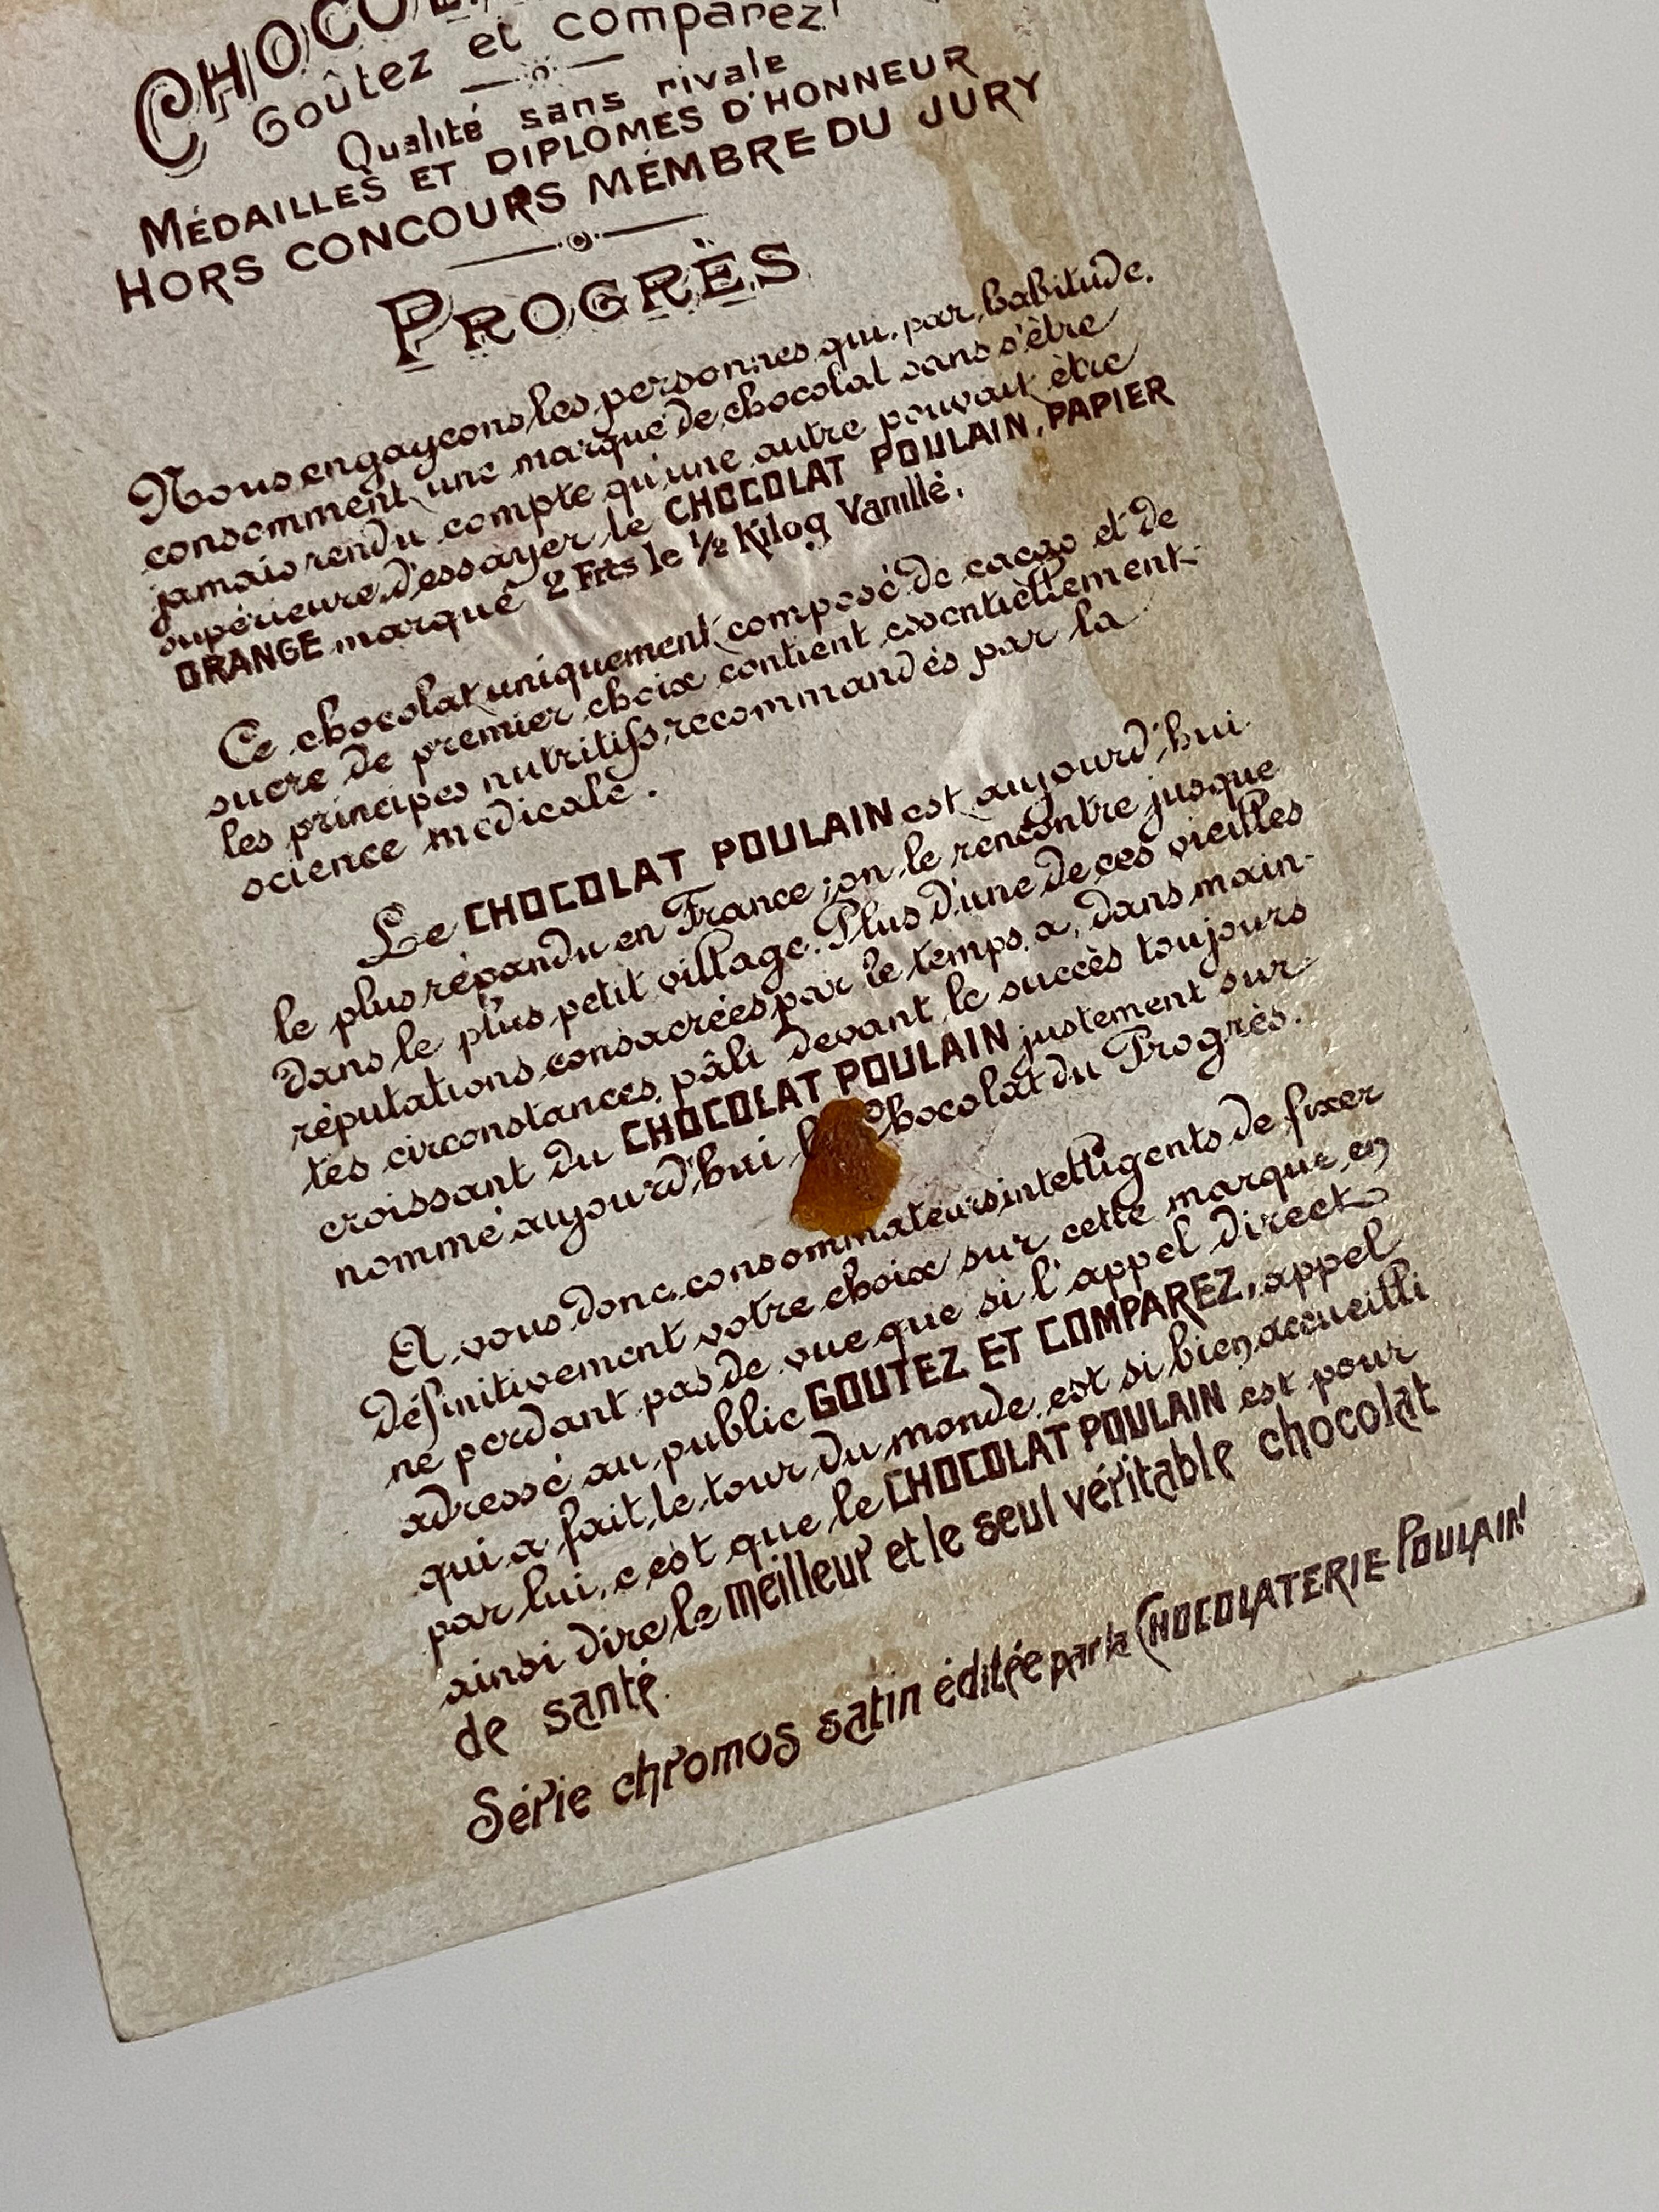 Goûtez et comparez!
Qualité sans rivale
MÉDAILLES ET DIPLOMES D'HONNEUR
HORS CONCOURS MEMBRE DU JURY
PROGRÈS
Nous engageons les personnes qui, par habitude,
consomment une marque de chocolat sans s'être
jamais rendu compte qu'une autre pouvait être
supérieure, d'essayer le CHOCOLAT POULAIN, PAPIER
ORANGE marqué 2 Frcs le ½ Kilog Vanillé.
Ce chocolat uniquement composé de cacao et de
sucre de premier choix contient essentiellement
les principes nutritifs recommandés par la
science médicale.
Le CHOCOLAT POULAIN est aujourd'hui
le plus répandu en France; on le rencontre jusque
dans le plus petit village. Plus d'une de ces vieilles
réputations consacrées par le temps, a, dans main-
tes circonstances, pâli devant le succès toujours
croissant du CHOCOLAT POULAIN justement sur-
nommé aujourd'hui Chocolat du Progrès.
A vous donc, consommateurs intelligents de fixer
définitivement votre choix sur cette marque, en
ne perdant pas de vue que si l'appel direct
adressé au public GOUTEZ ET COMPAREZ, appel
qui a fait le tour du monde, est si bien accueilli
par lui, c'est que le CHOCOLAT POULAIN est pour
ainsi dire le meilleur et le seul véritable chocolat
de santé.
Série chromos satin éditée par la CHOCOLATERIE-POULAIN